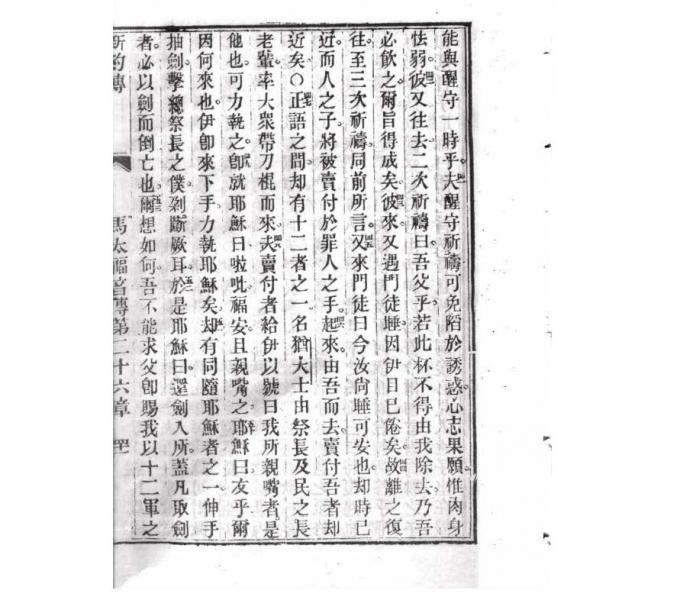 能與醒守一時乎夫醒守祈禱可免陷於誘惑心志果願惟肉身
怯弱彼又往去二次祈禱曰吾父乎若此杯不得由我除去乃吾
必飲之爾旨得成矣彼來又遇門徒睡因伊目已倦矣故離之復
往至三次祈禱同前所言又來門徒曰今汝尚睡可安也却時已
近而人之子將被賣付於罪人之手起來由吾而去賣付吾者却
近矣○正語之間却有十二者之一名猶大士由祭長及民之長
老輩率大眾帶刀棍而來夫賣付者給伊以號曰我所親嘴者是
他也可力執之卽就耶穌曰啦吡福安且親嘴之耶穌曰友乎爾
因何來也伊卽來下手力執耶穌矣却有同隨耶穌者之一伸手
抽劍擊總祭長之僕剁斷厥耳於是耶穌曰還劍入所蓋凡取劍
者必以劍而倒亡也爾想如何吾不能求父卽賜我以十二軍之
新約傳 馬太福音傳第二十六章